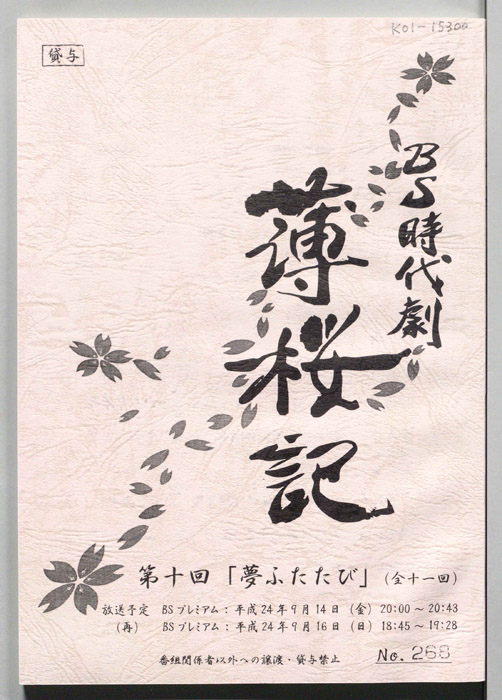 K01-15300
貸与
BS時代劇
薄桜記
第十回「夢ふたたび」(全十一回)
放送予定 BSプレミアム:平成24年9月14日(金)20:00~20:43
(再) BSプレミアム:平成24年9月16日(日)18:45~19:28
番組関係者以外への譲渡・貸与禁止
No. 268